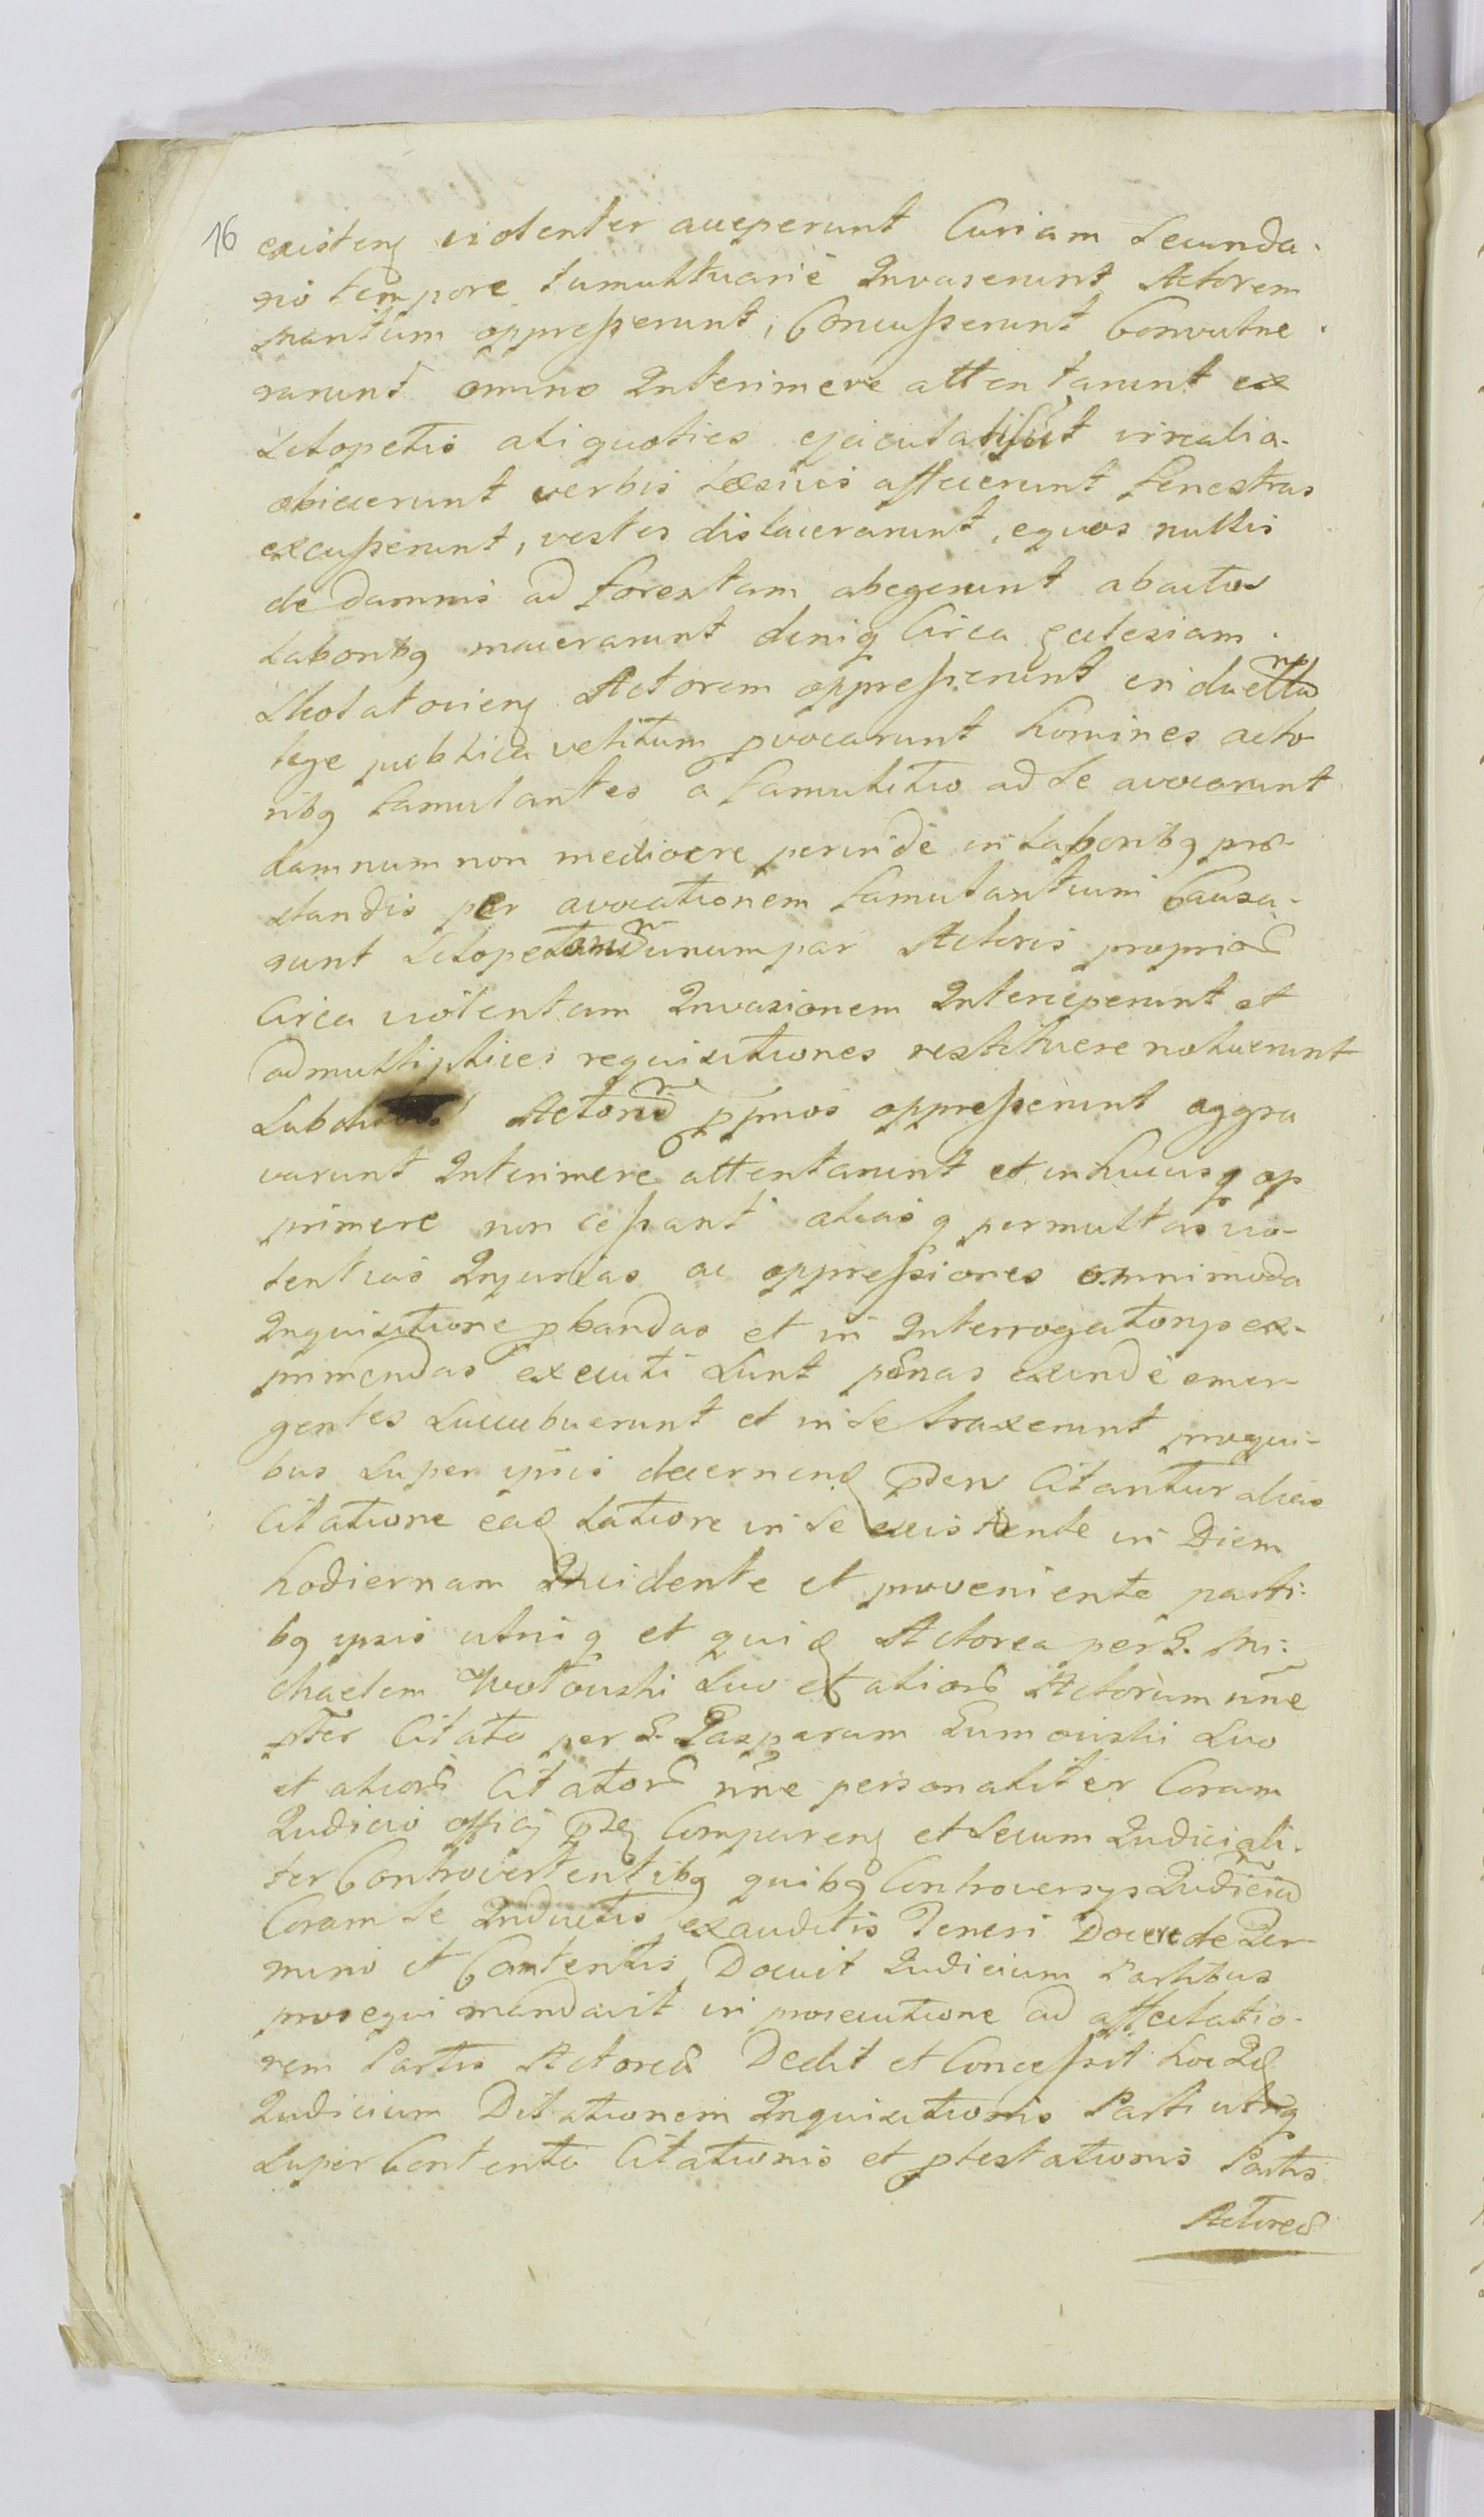 16
existenꝫ violenter acceperunt Curiam Secunda.
rio tempore tumultuarie Invaserunt, Actorem
oppresserunt, Concusserunt Convulne.
rarunt omino Interimere attentarunt ex
Sclopetis aliquoties ejaculati sut
obiecerunt verbis læsivis affecerunt fenestras
excusserunt, vestes dislacerarunt, equos nullis
de damnis ad forestam abegerunt abactos
Laboribꝫ macerarunt deniqꝫ Circa Ecclesiam
Actorem oppresserunt in duellu
lege publica vetitum pvocarunt homines acto
ribꝫ famulantes a famulitio ad se avocarunt
damnum non mediocre perinde in laboribꝫ præ-
standis per avocationem famulantium Causa-
runt unum par Actoris
Circa violentam Invasionem Interceperunt et
ad multiplices requisitiones restituere noluerunt
oppresserunt aggra
varunt Interimere attentarunt et in hucusqꝫ op
primere non cessant aliasqꝫ permultas vio-
lentias Injurias ac oppressiones omnimoda
Inquisitione pbandas et in Interrogatorijs ex-
primendas executi sunt pœnas exinde emer-
gentes succubuerunt et in se traxerunt proqui-
bus super ipsis decernenꝫ Citantur alias
Citatione eaꝫ latiore in se existente in Diem
hodiernam Incidente et proveniente parti:
bꝫ ipsis utriqꝫ et quiꝫ Actorea per G. Mi:
chaelem Suo et alior Actorum nne
pter Citata per G. Gasparum Suo
et alior Citator nne personaliter Coram
Judicio officij pñꝫ Comparenꝫ et secum Judiciali.
ter Controvertentibꝫ quibꝫ Controversijs Judiciu
Coram se Inductis exauditis Teneri Docere de Ter
mino et Contentis, Docuit Judicium Partibus
prosequi mandavit in prosecutione ad affectatio-
nem Partis Actoreæ Dedit et Concessit hoc Idꝫ
Judicium Dilationem Inquisitionis Parti utriqꝫ
super Contento Citationis et ptestationis Partis
Actoreæ